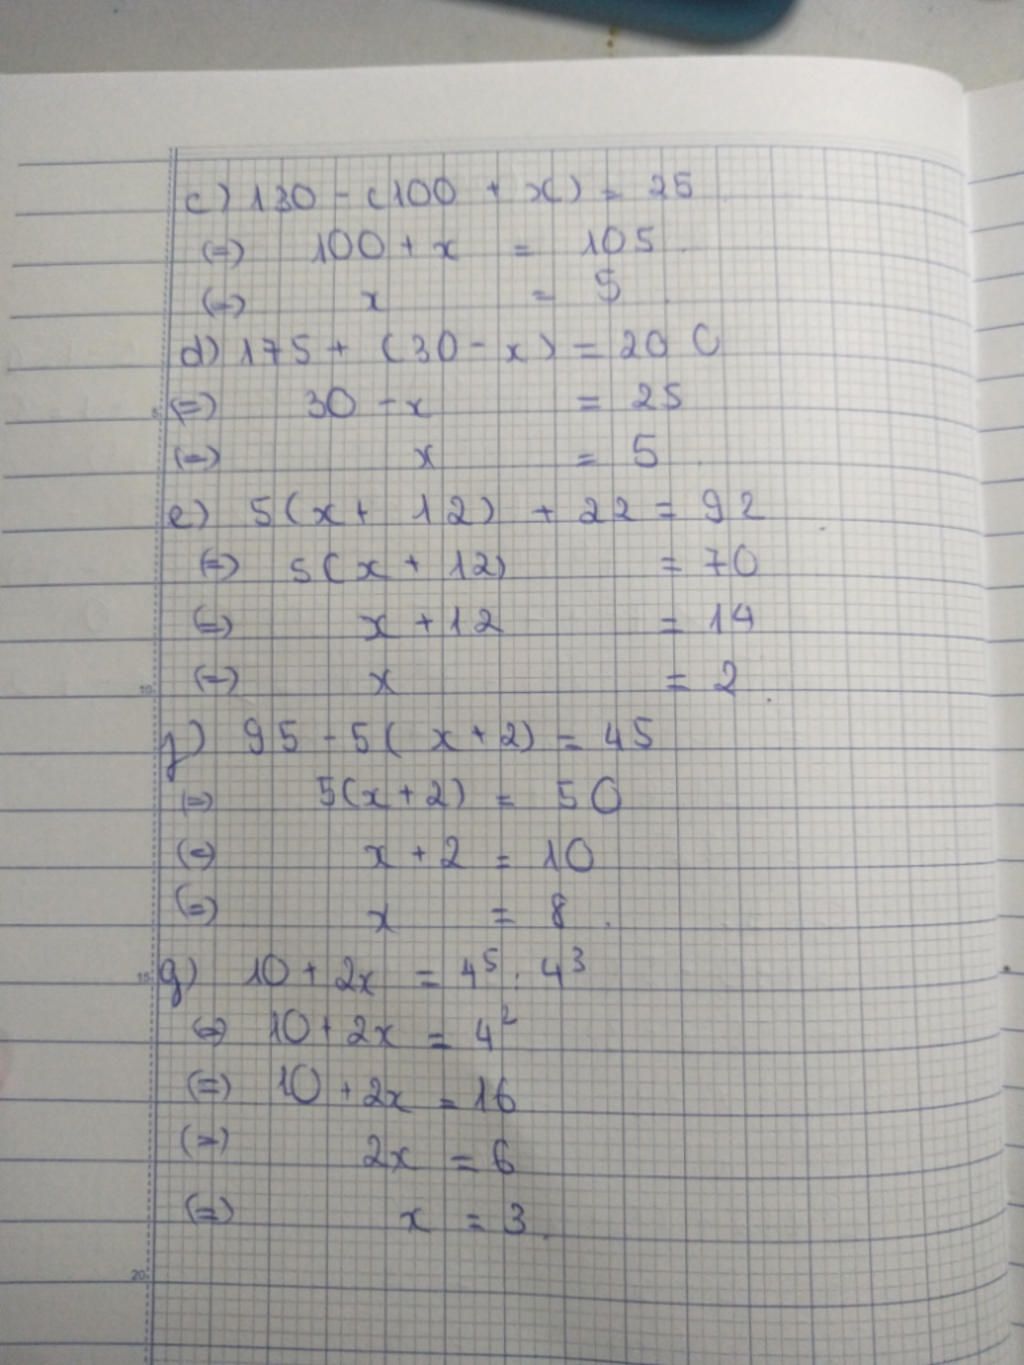 c) 130 - (100 + x) = 25
(=) 100 + x = 105.
(=) x = 5.
d) 175 + (30 - x) = 200
(=) 30 - x = 25
(=) x = 5.
e) 5(x + 12) + 22 = 92
(=) 5(x + 12) = 70
(=) x + 12 = 14
(=) x = 2.
f) 95 - 5(x + 2) = 45
(=) 5(x + 2) = 50
(=) x + 2 = 10
(=) x = 8.
g) 10 + 2x = 4⁵ : 4³
(=) 10 + 2x = 4²
(=) 10 + 2x = 16
(=) 2x = 6
(=) x = 3.